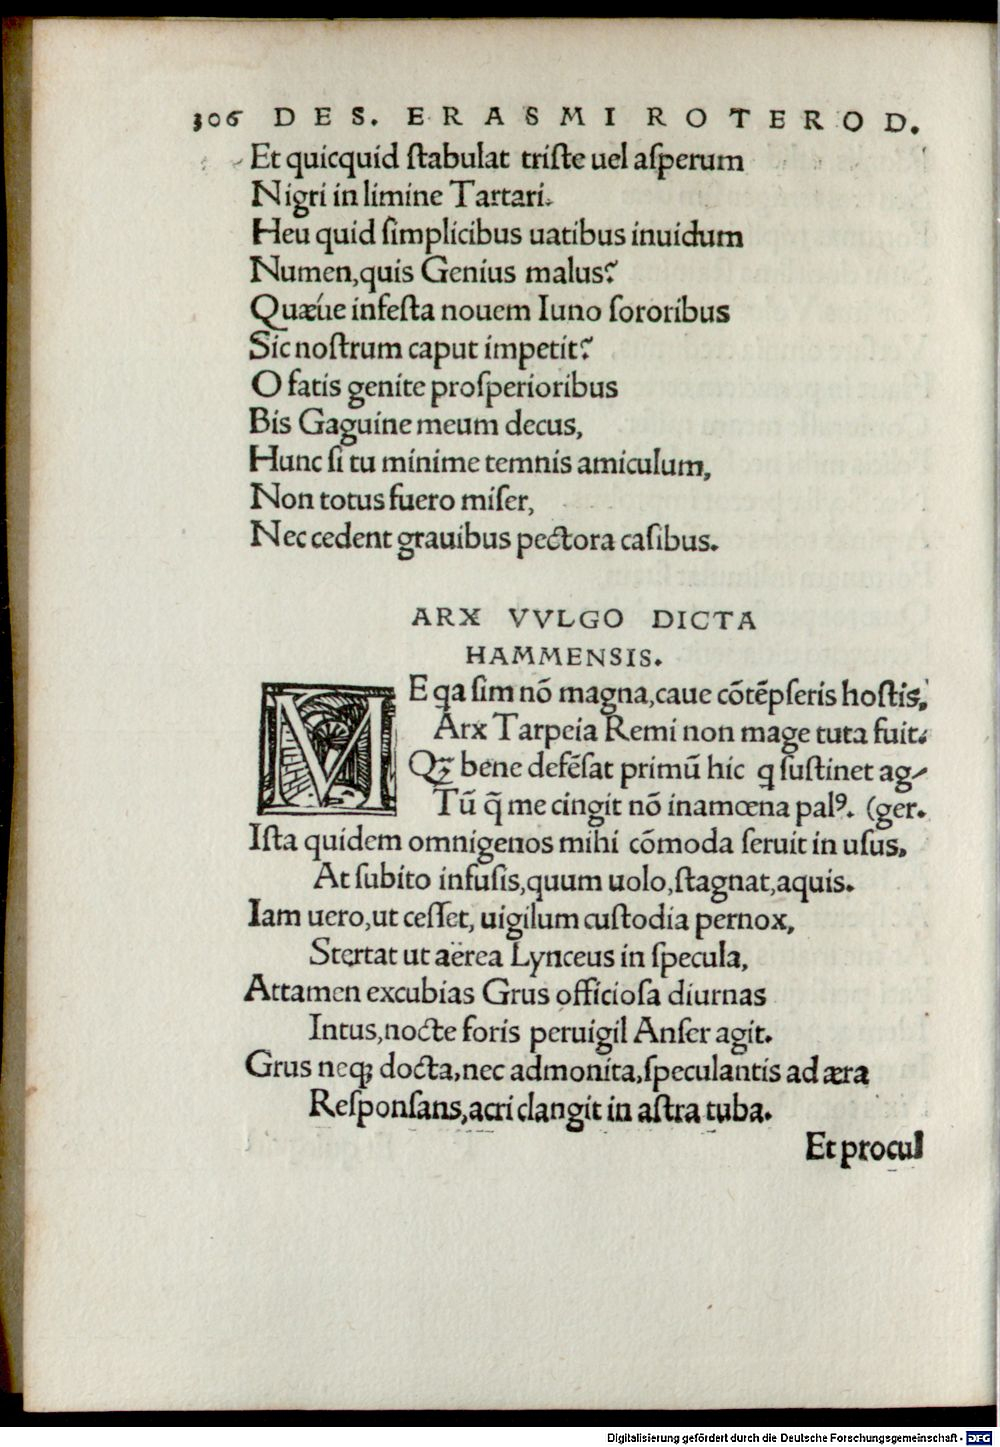 306 DES. ERASMI ROTEROD.
Et quicquid ſtabulat triſte uel aſperum
Nigri in limine Tartari.
Heu quid ſimplicibus uatibus inuidum
Numen,quis Genius malus?
Quæúe infeſta nouem Iuno ſororibus
Sic noſtrum caput impetit?
O fatis genite proſperioribus
Bis Gaguine meum decus,
Hunc ſi tu minime temnis amiculum,
Non totus fuero miſer,
Nec cedent grauibus pectora caſibus.
ARX VVLGO DICTA
HAMMENSIS.
ME qa ſim nō magna,caue cōtēpſeris hoſtis,
Arx Tarpeia Remi non mage tuta fuit.
Qꝫ bene defēſat primū hic q ſuſtinet ag-
Tū q̃ me cingit nō inamœna palꝰ. (ger.
Iſta quidem omnigenos mihi cōmoda ſeruit in uſus,
At ſubito infuſis,quum uolo,ſtagnat,aquis.
Iam uero,ut ceſſet, uigilum cuſtodia pernox,
Stertat ut aërea Lynceus in ſpecula,
Attamen excubias Grus officioſa diurnas
Intus,nocte foris peruigil Anſer agit.
Grus neqꝫ docta,nec admonita,ſpeculantis ad æra
Reſponſans,acri clangit in aſtra tuba.
Et procul
Digitalisierung gefördert durch die Deutsche Forschungsgemeinschaft - DFG